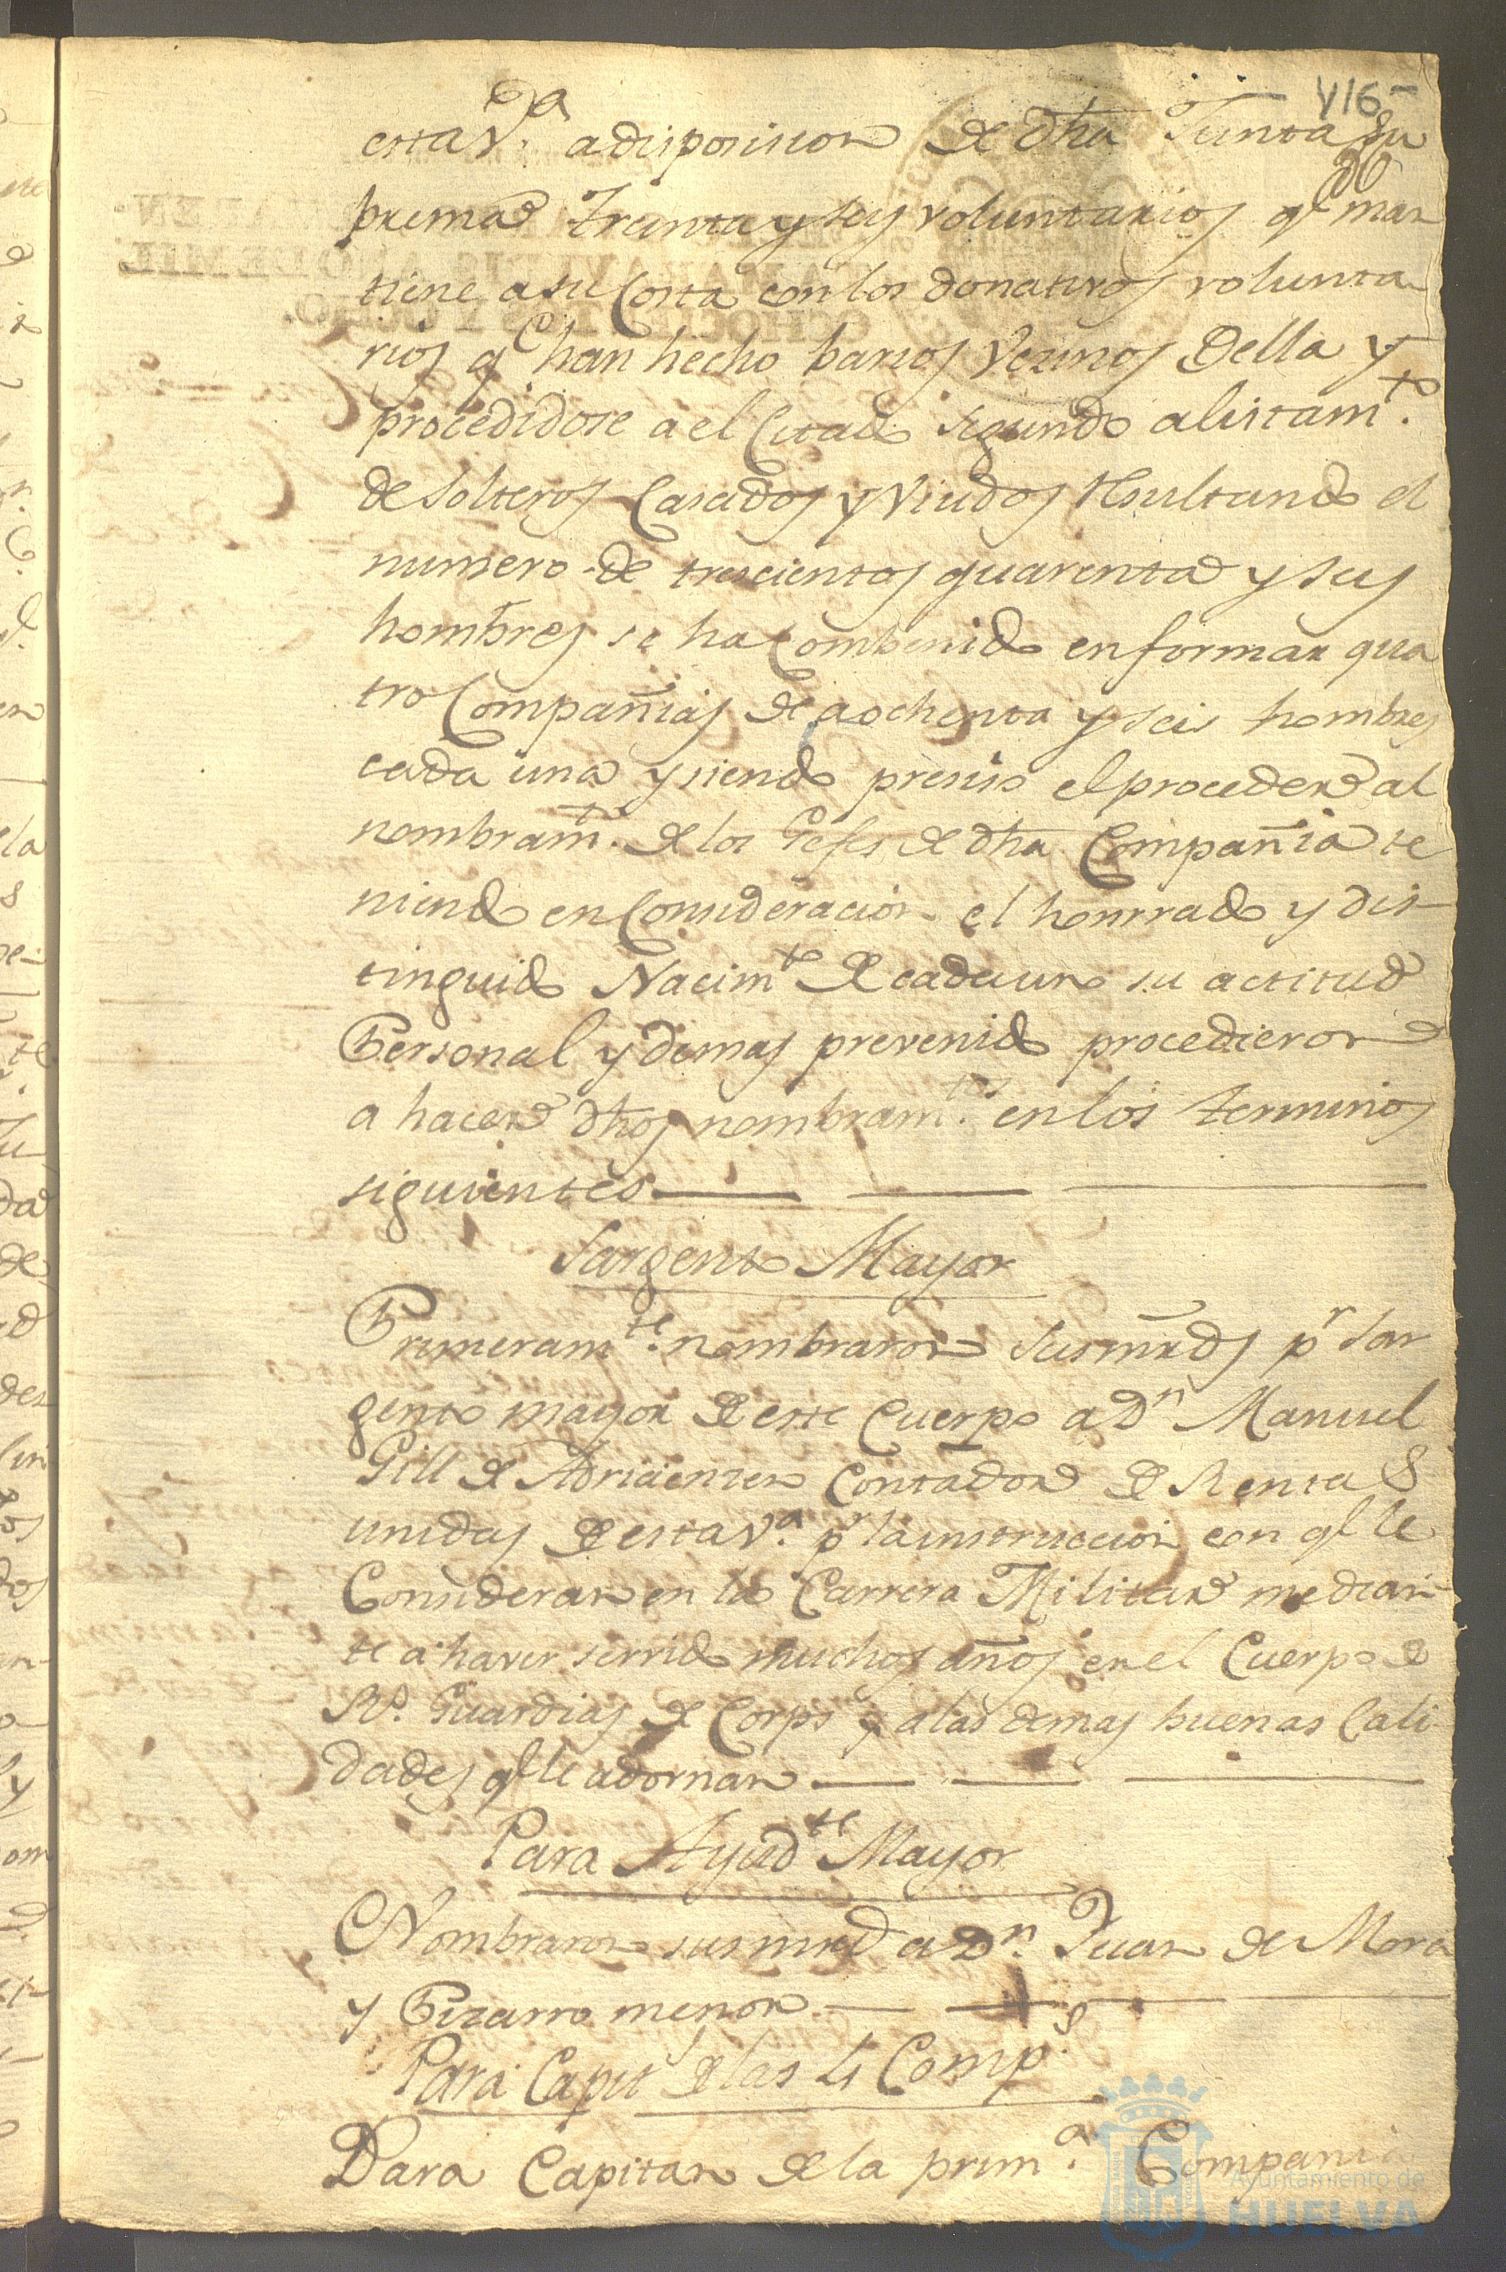 116
esta V.ª a disposision de dha Junta Su
prema treinta y seis voluntarios q.e man
tiene a su Costa con los donativos volunta
rios q.e han hecho barios Vezinos della y
procedidose a el Citado segundo alistam.to
de Solteros Casados y Viudos Resultando el
numero de trescientos quarenta y seis
hombres se ha Combenido en formar qua
tro Compañias de a ochenta y seis hombres
cada una y siendo presiso el proceder al
nombram.to de los Gefes de dha Compañia te
niendo en Consideracion el honrrado y dis-
tinguido Nacim.to de cada uno su actitud
Personal y demas prevenido procedieron
a hacer dhos nombram.tos en los terminos
siguientes
Sargento Mayor
Primeram.te nombraron sus mrds p.r Sar
gento mayor de este Cuerpo a D.n Manuel
Gill de Contador de Rentas
unidas de esta V.ª p.r la instruccion con q.e le
Consideran en la Carrera Militar median-
te a haver servido muchos años en el Cuerpo de
R.s Guardias de Corps y a las demas buenas Cali
dades q.e le adornan
Para Ayud.te Mayor
Nombraron sus mrd a D.n Juan de Mora
y Pizarro menor
Para Capit de las 4 Comp.s
Para Capitan de la prim.ª Compañia
Ayuntamiento de
HUELVA